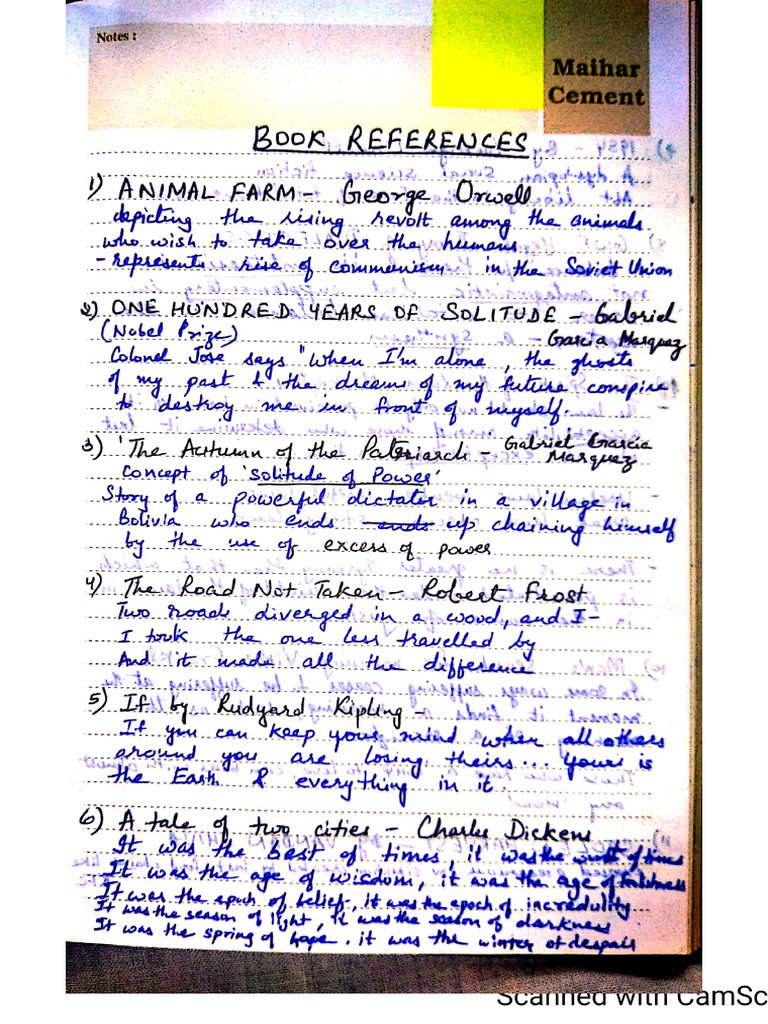 Notes :
Maihar
Cement
BOOK REFERENCES
1) ANIMAL FARM - George Orwell
depicting the rising revolt among the animals
who wish to take over the humans
- represents rise of communism in the Soviet Union
2) ONE HUNDRED YEARS OF SOLITUDE - Gabriel
(Nobel Prize) - Garcia Marquez
Colonel Jose says "When I'm alone, the ghosts
of my past & the dreams of my future conspire
to destroy me in front of myself.
3) 'The Autumn of the Patriarch - Gabriel Garcia
Marquez
Concept of 'Solitude of Power'
Story of a powerful dictator in a village in
Bolivia who ends ends up chaining himself
by the use of excess of power
4) The Road Not Taken - Robert Frost
Two roads diverged in a wood, and I -
I took the one less travelled by
And it made all the difference
5) If by Rudyard Kipling -
If you can keep your mind when all others
around you are losing theirs... Yours is
the Earth & everything in it.
6) A tale of two cities - Charles Dickens
It was the best of times, it was the worst of times
It was the age of wisdom, it was the age of foolishness
It was the epoch of belief, it was the epoch of incredulity
It was the season of light, it was the season of darkness
It was the spring of hope, it was the winter of despair
Scanned with CamSc